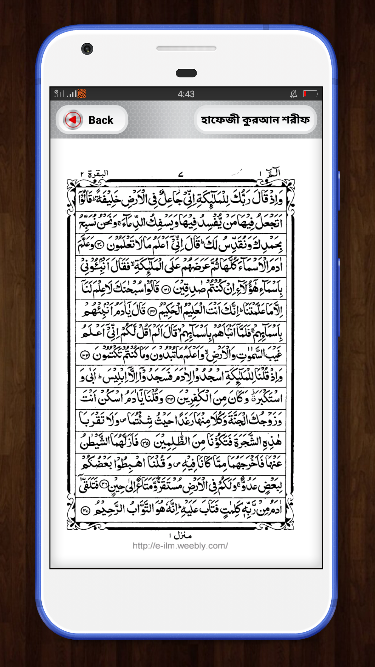 4:43
Back
হাফেজী কুরআন শরীফ
البقرة ٢
٧
الٓمّٓ ١
وَاِذْ قَالَ رَبُّكَ لِلْمَلٰٓئِكَةِ اِنِّيْ جَاعِلٌ فِي الْاَرْضِ خَلِيْفَةً ؕ قَالُوْٓا
اَتَجْعَلُ فِيْهَا مَنْ يُّفْسِدُ فِيْهَا وَيَسْفِكُ الدِّمَآءَ ۚ وَنَحْنُ نُسَبِّحُ
بِحَمْدِكَ وَنُقَدِّسُ لَكَ ؕ قَالَ اِنِّيْٓ اَعْلَمُ مَا لَا تَعْلَمُوْنَ ۝۳۰ وَعَلَّمَ
اٰدَمَ الْاَسْمَآءَ كُلَّهَا ثُمَّ عَرَضَهُمْ عَلَى الْمَلٰٓئِكَةِ ۙ فَقَالَ اَنْۢبِـُٔوْنِيْ
بِاَسْمَآءِ هٰٓؤُلَآءِ اِنْ كُنْتُمْ صٰدِقِيْنَ ۝۳۱ قَالُوْا سُبْحٰنَكَ لَا عِلْمَ لَنَآ
اِلَّا مَا عَلَّمْتَنَا ؕ اِنَّكَ اَنْتَ الْعَلِيْمُ الْحَكِيْمُ ۝۳۲ قَالَ يٰٓاٰدَمُ اَنْۢبِئْهُمْ
بِاَسْمَآئِهِمْ ۚ فَلَمَّآ اَنْۢبَاَهُمْ بِاَسْمَآئِهِمْ ۙ قَالَ اَلَمْ اَقُلْ لَّكُمْ اِنِّيْٓ اَعْلَمُ
غَيْبَ السَّمٰوٰتِ وَالْاَرْضِ ۙ وَاَعْلَمُ مَا تُبْدُوْنَ وَمَا كُنْتُمْ تَكْتُمُوْنَ ۝۳۳
وَاِذْ قُلْنَا لِلْمَلٰٓئِكَةِ اسْجُدُوْا لِاٰدَمَ فَسَجَدُوْٓا اِلَّآ اِبْلِيْسَ ؕ اَبٰى وَ
اسْتَكْبَرَ ۫ وَكَانَ مِنَ الْكٰفِرِيْنَ ۝۳۴ وَقُلْنَا يٰٓاٰدَمُ اسْكُنْ اَنْتَ
وَزَوْجُكَ الْجَنَّةَ وَكُلَا مِنْهَا رَغَدًا حَيْثُ شِئْتُمَا ۪ وَلَا تَقْرَبَا
هٰذِهِ الشَّجَرَةَ فَتَكُوْنَا مِنَ الظّٰلِمِيْنَ ۝۳۵ فَاَزَلَّهُمَا الشَّيْطٰنُ
عَنْهَا فَاَخْرَجَهُمَا مِمَّا كَانَا فِيْهِ ۪ وَقُلْنَا اهْبِطُوْا بَعْضُكُمْ
لِبَعْضٍ عَدُوٌّ ۚ وَلَكُمْ فِي الْاَرْضِ مُسْتَقَرٌّ وَّمَتَاعٌ اِلٰى حِيْنٍ ۝۳۶ فَتَلَقّٰٓى
اٰدَمُ مِنْ رَّبِّهٖ كَلِمٰتٍ فَتَابَ عَلَيْهِ ؕ اِنَّهٗ هُوَ التَّوَّابُ الرَّحِيْمُ ۝۳۷
منزل ١
http://e-ilm.weebly.com/